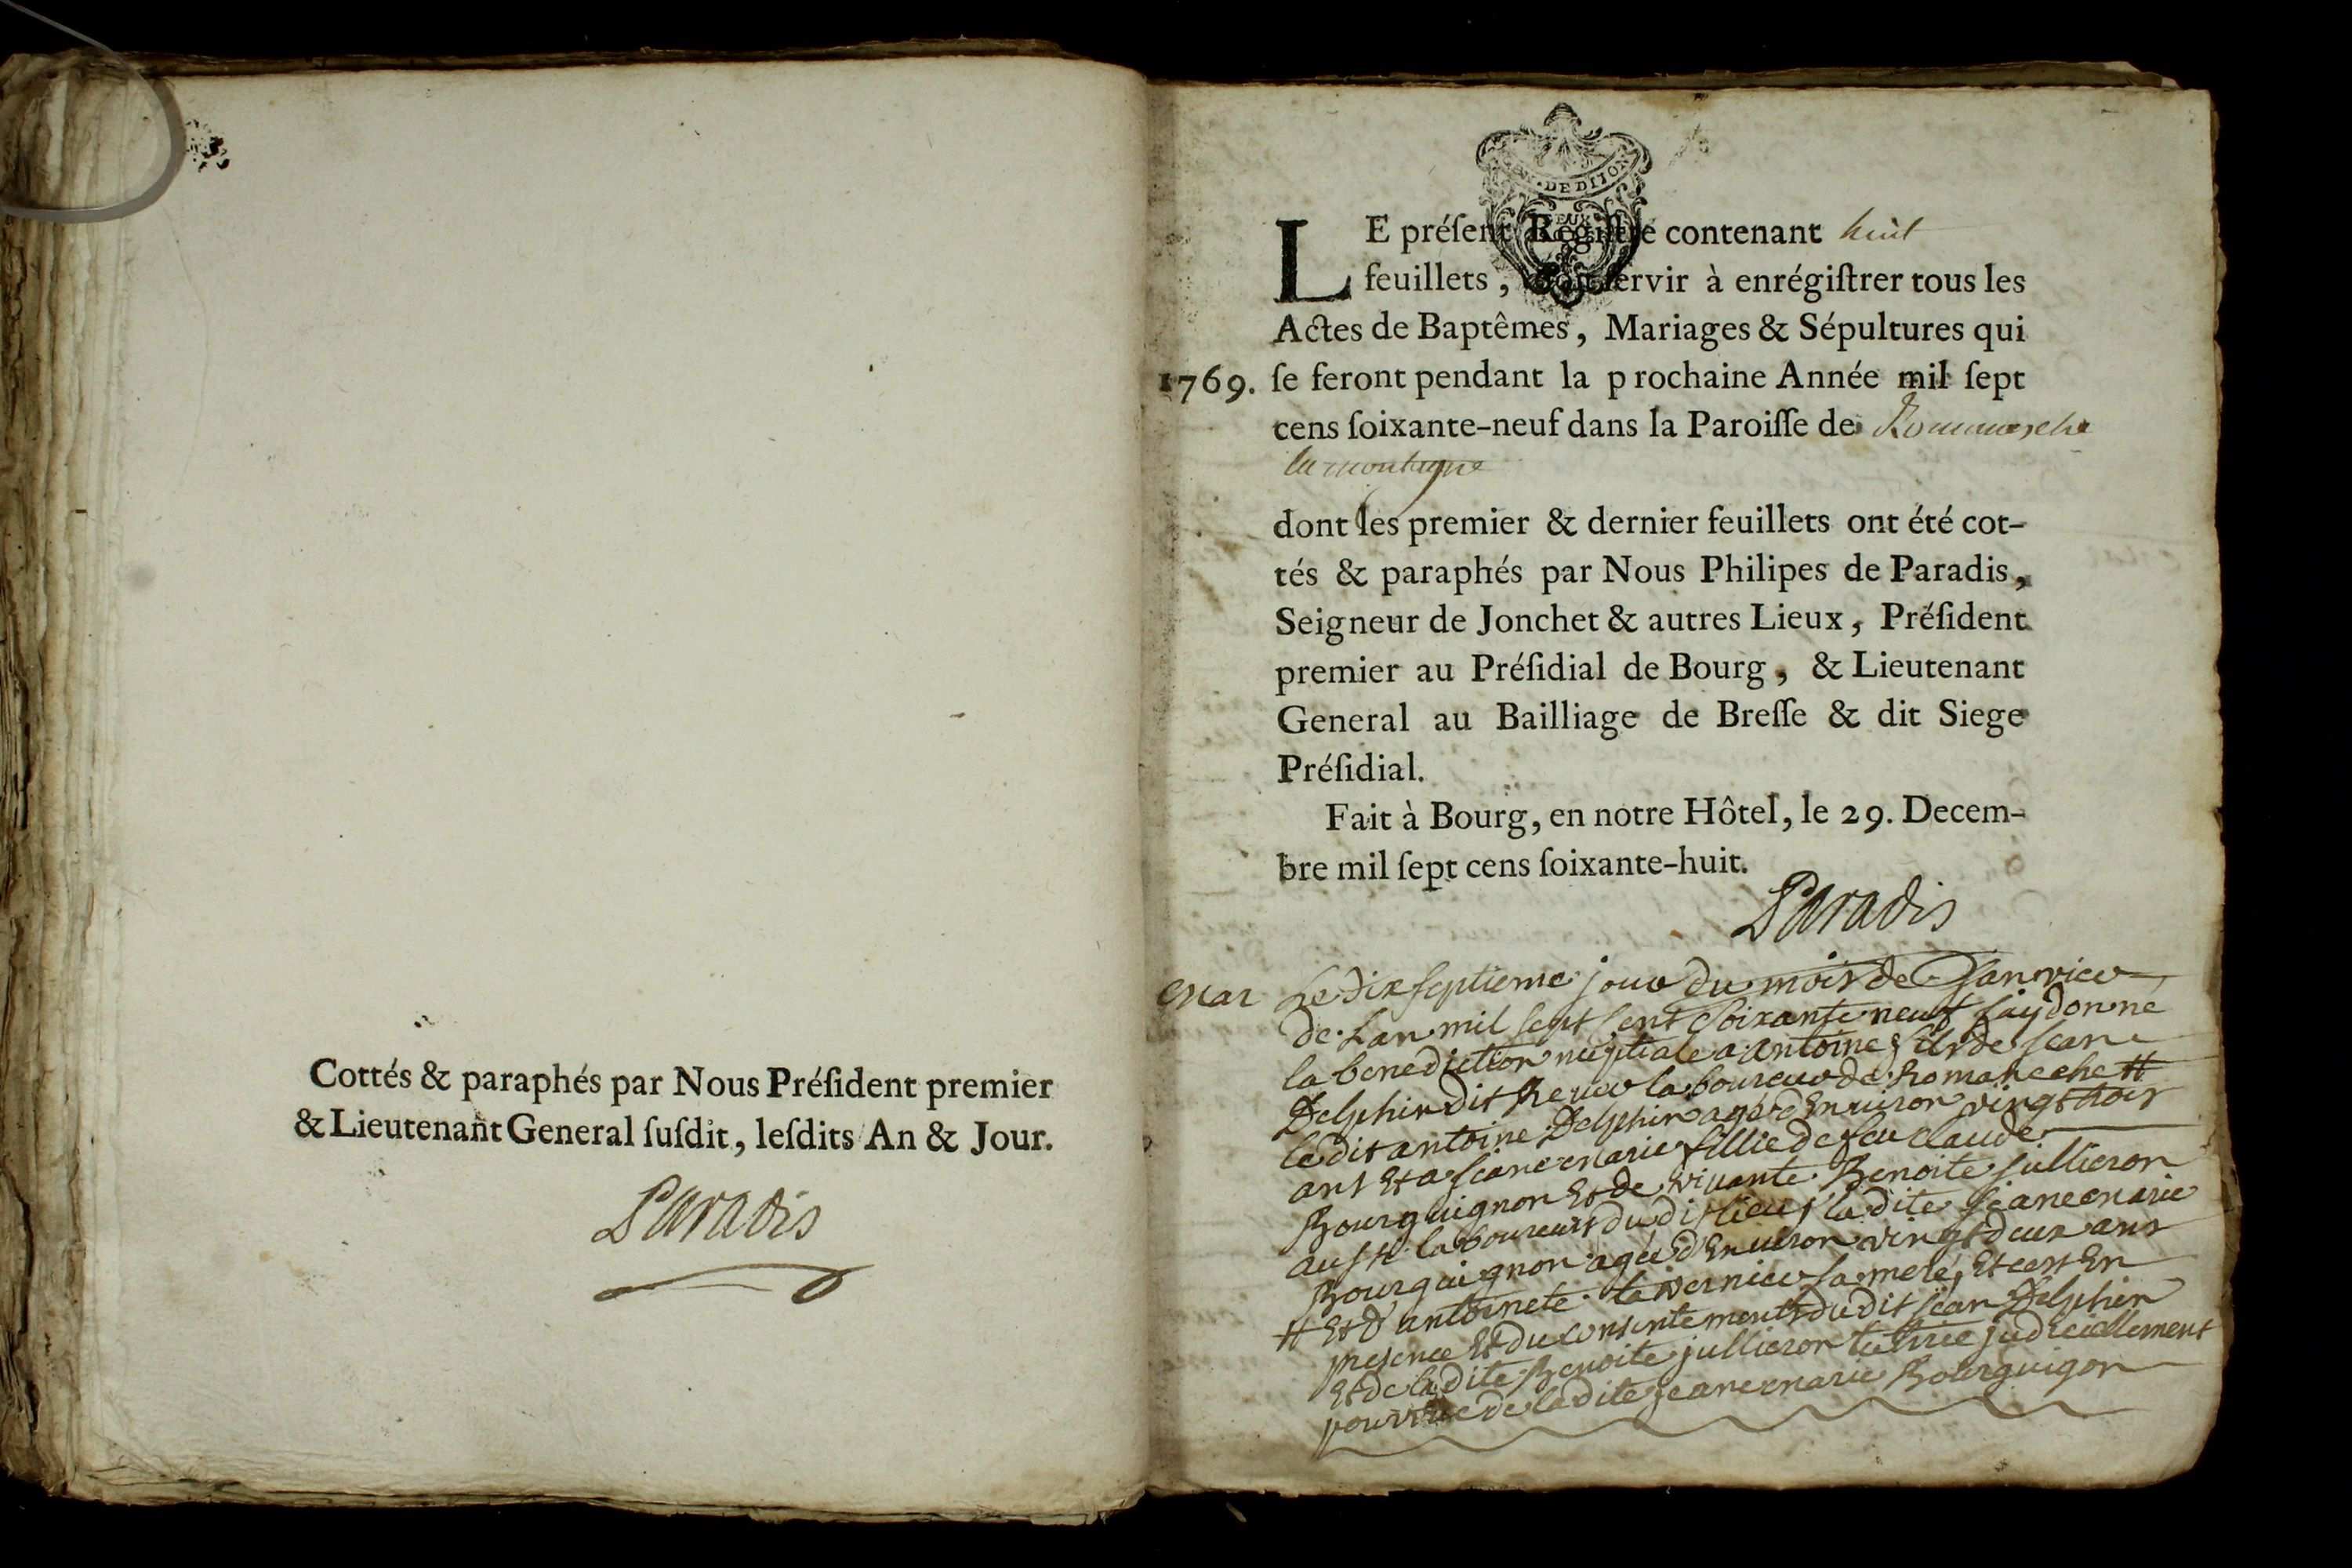 Cottés & paraphés par Nous Préſident premier
& Lieutenant General ſuſdit, leſdits An & Jour.
Paradis
DE DIJON
LE préſent Régiſtre contenant huit
feuillets, ſervir à enrégiſtrer tous les
Actes de Baptêmes, Mariages & Sépultures qui
1769. ſe feront pendant la p rochaine Année mil ſept
cens ſoixante-neuf dans la Paroiſſe de Romanesche
la montagne
dont les premier & dernier feuillets ont été cot-
tés & paraphés par Nous Philipes de Paradis,
Seigneur de Jonchet & autres Lieux, Préſident
premier au Préſidial de Bourg, & Lieutenant
General au Bailliage de Breſſe & dit Siege
Préſidial.
Fait à Bourg, en notre Hôtel, le 29. Decem-
bre mil ſept cens ſoixante-huit.
Paradis
Mar Le dix septieme jour du mois de Janvier
de Lan mil sept cent soixante neuf jay donné
la benediction nuptiale a antoine fils de Jean
Delphin dit Reveu laboureur de Romaneche #
le dit antoine Delphin agé d'Environ vingt trois
ans Et a Jeane Marie fillie de feu claude
Bourguignon Et de vivante Benoite jullieron
aussi laboureurs du dit lieu, la dite Jeane Marie
Bourguignon agée d'Environ vingt deux ans
# Et d'antoinete tavernier sa mere, Et cest En
presence Et du consintement du dit jean Delphin
Et de la dite Benoite jullieron tutrice judiciellement
pourvue de la dite Jeane Marie Bourguigon